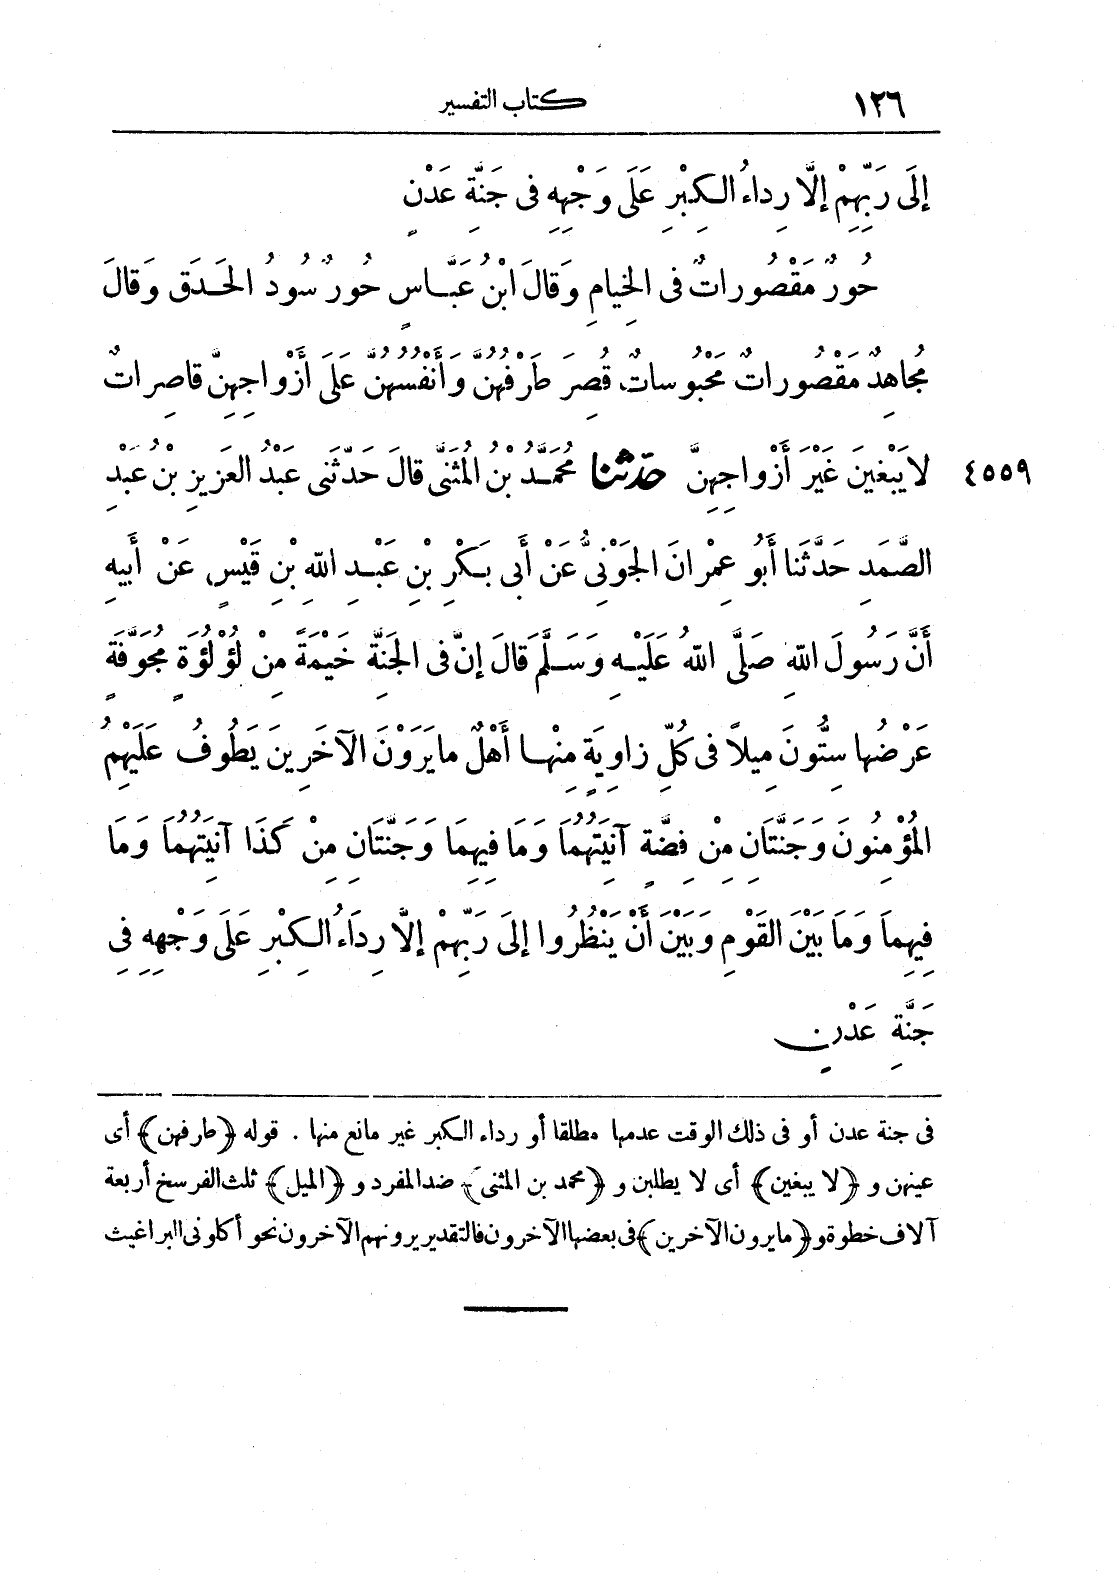 ١٢٦ كتاب التفسير
إلَى رَبِّهِمْ إلَّا رِداءُ الكِبْرِ عَلَى وَجْهِهِ فى جَنَّةِ عَدْنٍ
حُورٌ مَقْصُوراتٌ فى الخِيامِ وَقالَ ابْنُ عَبَّاسٍ حُورٌ سُودُ الحَدَقِ وَقالَ
مُجاهِدٌ مَقْصُوراتٌ مَحْبُوساتٌ قُصِرَ طَرْفُهُنَّ وَأَنْفُسُهُنَّ عَلَى أَزْواجِهِنَّ قاصِراتٌ
٤٥٥٩ لا يَبْغِينَ غَيْرَ أَزْواجِهِنَّ حدّثنا مُحَمَّدُ بْنُ المُثَنَّى قالَ حَدَّثَنى عَبْدُ العَزِيزِ بْنُ عَبْدِ
الصَّمَدِ حَدَّثَنا أَبُو عِمْرانَ الجَوْنِىُّ عَنْ أَبى بَكْرِ بْنِ عَبْدِ اللهِ بْنِ قَيْسٍ عَنْ أَبِيهِ
أَنَّ رَسُولَ اللهِ صَلَّى اللهُ عَلَيْهِ وَسَلَّمَ قالَ إنَّ فى الجَنَّةِ خَيْمَةً مِنْ لُؤْلُؤَةٍ مُجَوَّفَةٍ
عَرْضُها سِتُّونَ مِيلاً فى كُلِّ زاوِيَةٍ مِنْها أَهْلٌ ما يَرَوْنَ الآخَرِينَ يَطُوفُ عَلَيْهِمُ
المُؤْمِنُونَ وَجَنَّتَانِ مِنْ فِضَّةٍ آنِيَتُهُمَا وَمَا فِيهِمَا وَجَنَّتَانِ مِنْ كَذَا آنِيَتُهُمَا وَمَا
فِيهِمَا وَمَا بَيْنَ القَوْمِ وَبَيْنَ أَنْ يَنْظُرُوا إلَى رَبِّهِمْ إلَّا رِدَاءُ الكِبْرِ عَلَى وَجْهِهِ فِى
جَنَّةِ عَدْنٍ
فى جنة عدن أو فى ذلك الوقت عدمها مطلقا أو رداء الكبر غير مانع منها . قوله ﴿طرفهن﴾ أى
عينهن و ﴿لا يبغين﴾ أى لا يطلبن و ﴿محمد بن المثنى﴾ ضد المفرد و ﴿الميل﴾ ثلث الفرسخ أربعة
آلاف خطوة و ﴿ما يرون الآخرين﴾ فى بعضها الآخرون فالتقدير يرونهم الآخرون نحو أكلونى البراغيث